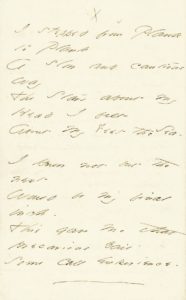 x
I stepped from Plank
to Plank
A slow and cautious
way
The Stars about my
Head I felt
About my Feet the Sea -

I knew not but the
next
Would be my final
inch -
This gave me that
precarious Gait
Some call Experience -